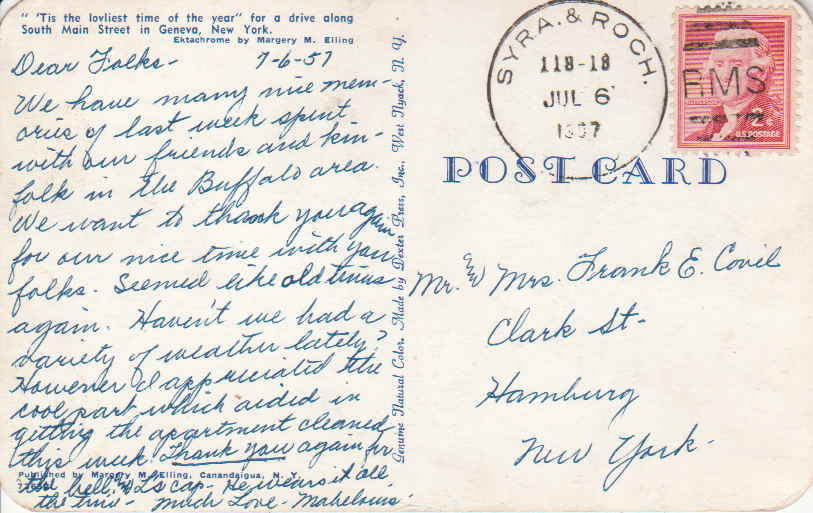 " 'Tis the lovliest time of the year" for a drive along
South Main Street in Geneva, New York.
Ektachrome by Margery M. Elling
Dear Folks- 7-6-57
We have many nice mem-
ories of last week spent
with our friends and kin-
folk in the Buffalo area.
We want to thank you again
for our nice time with you
folks. Seemed like old times
again. Haven't we had a
variety of weather lately?
However I appreciated the
cool part, which aided in
getting the apartment cleaned
this week. Thank you again for
Published by Margery M. Elling, Canandaigua, N. Y.
the bell, & L's cap - He wears it all
the time - much Love -
Genuine Natural Color. Made by Dexter Press, Inc., West Nyack, N. Y.
SYRA. & ROCH.
118-18
JUL 6
1957
RMS
2¢
U.S. POSTAGE
POST CARD
Mr. & Mrs. Frank E. Covil
Clark St-
Hamburg
New York-